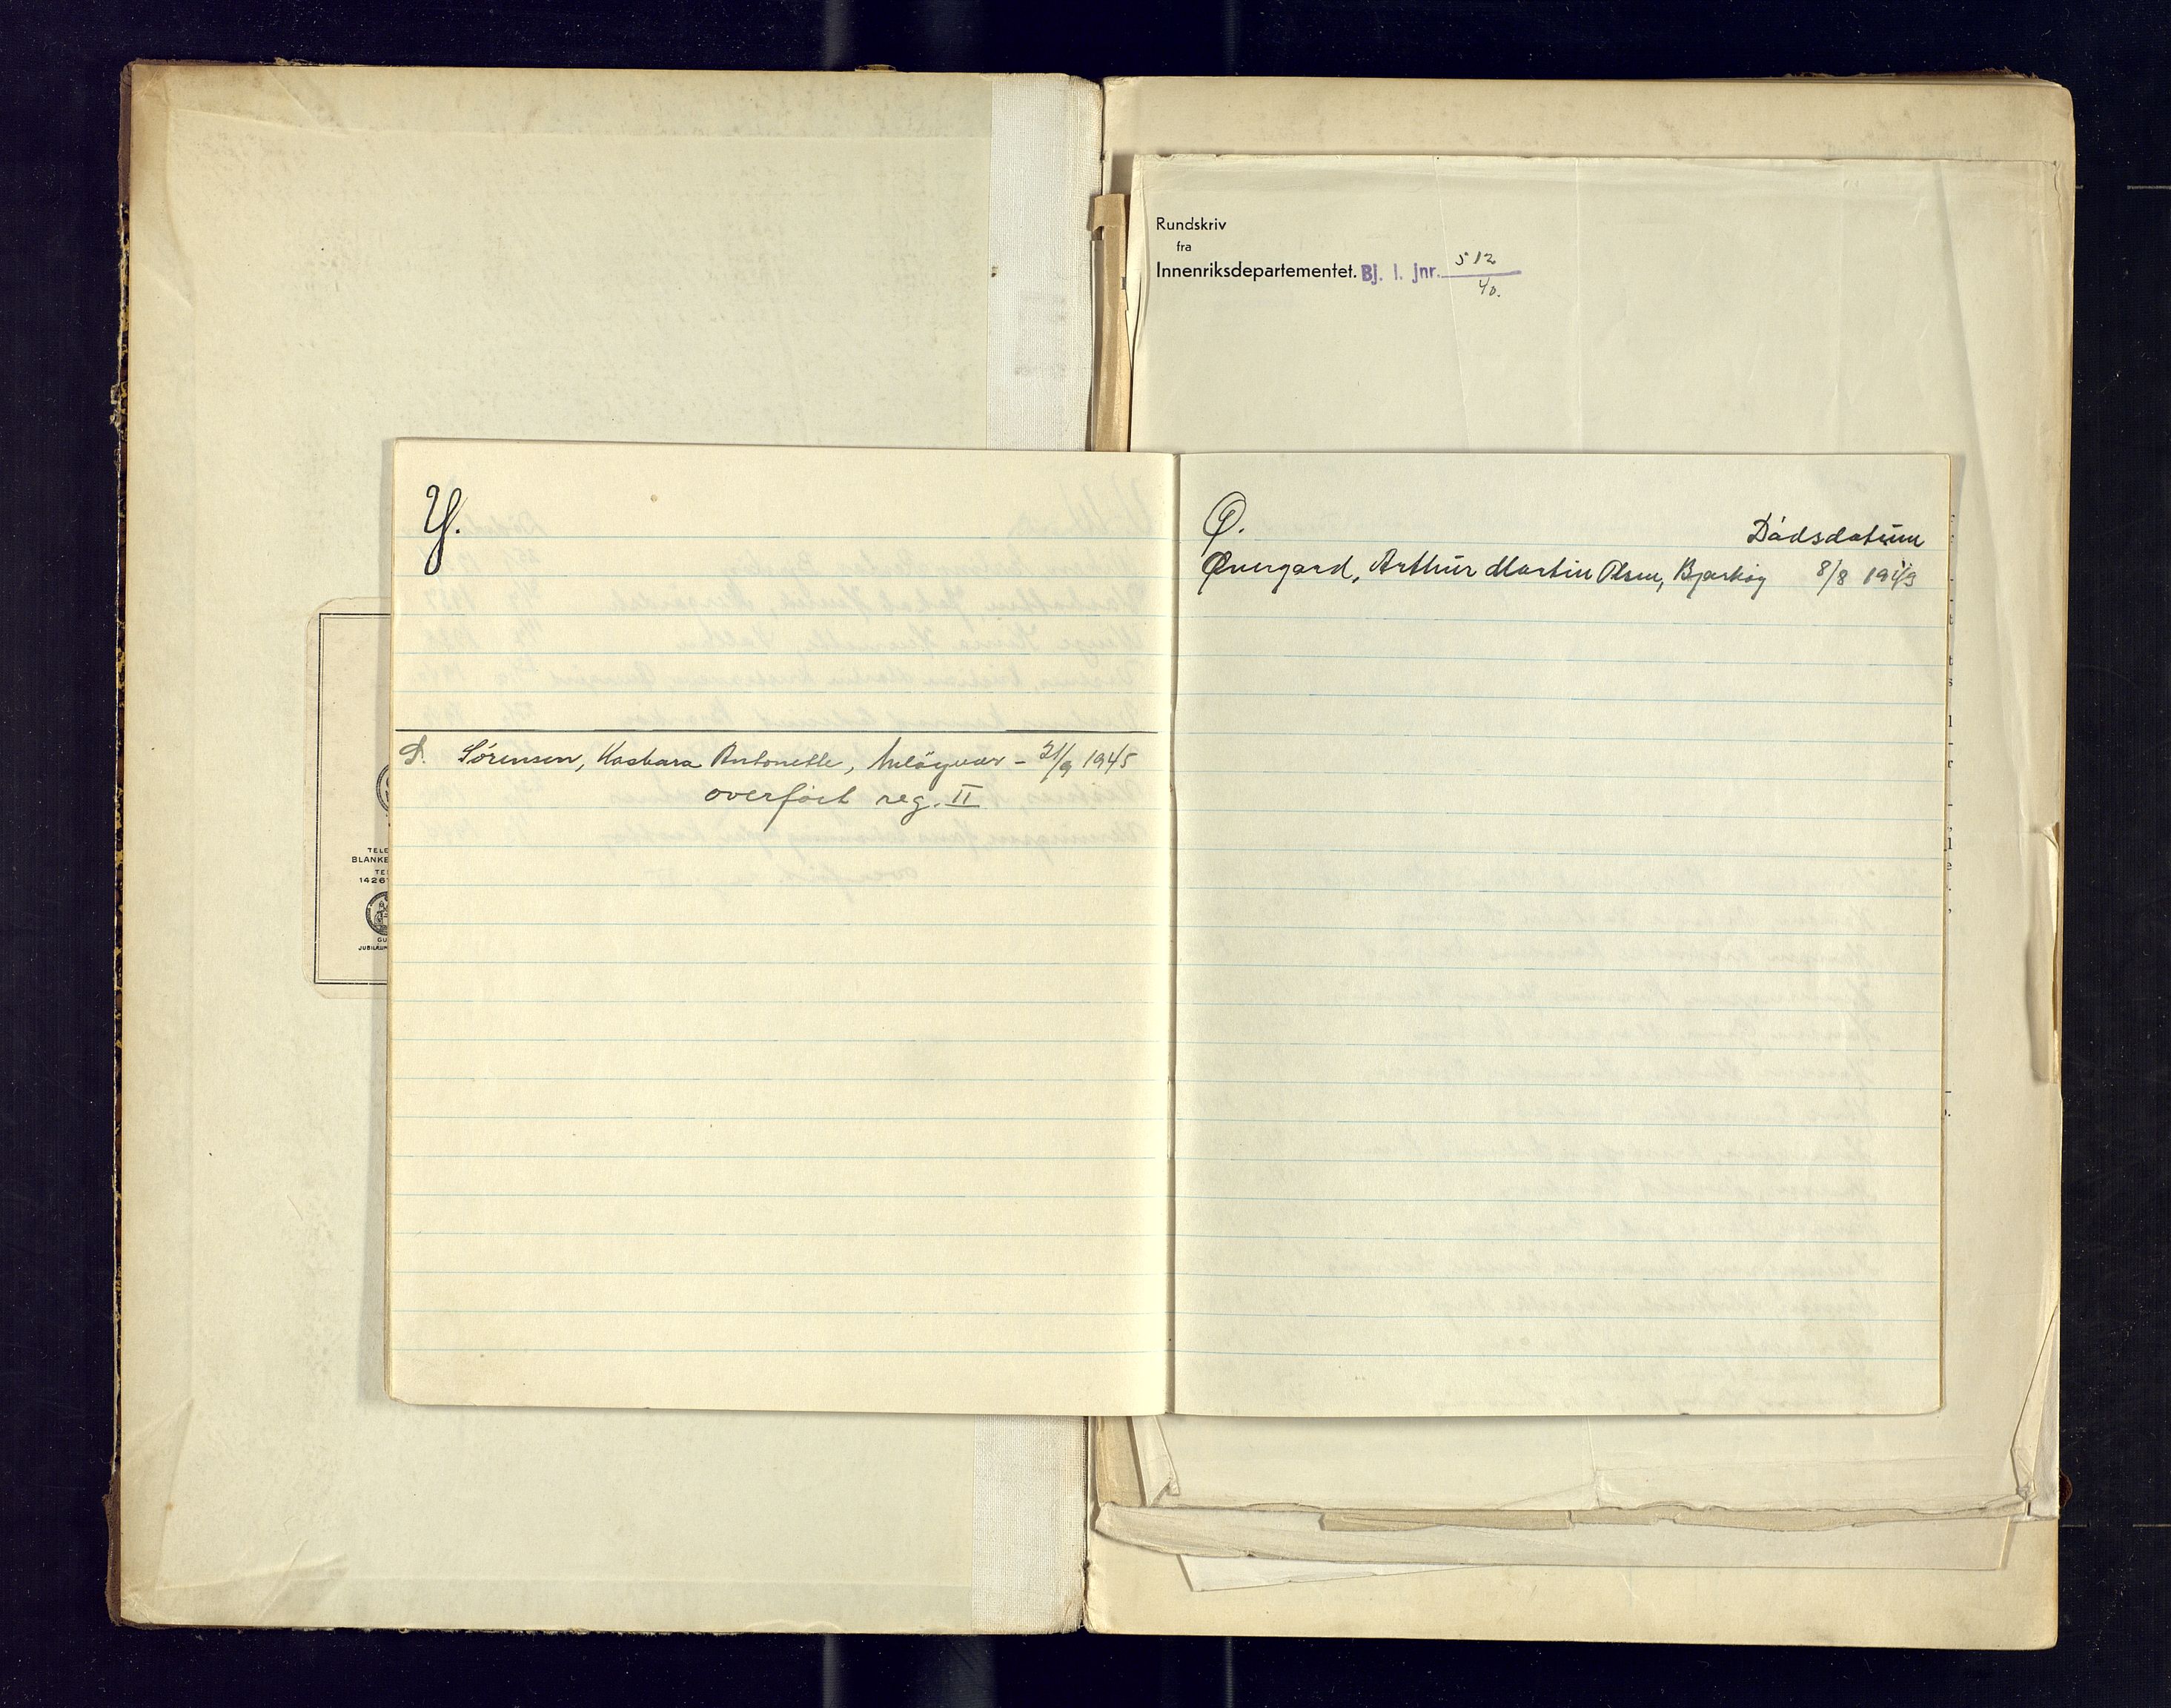 Rundskriv
fra
Innenriksdepartementet. Bj. l. jnr. 512
40.
Y.
S. Sørensen, Kasbara Antonette, Meløyvær - 21/9 1945
overført reg. II
Ø.
Dødsdatum
Øvergard, Arthur Martin Olsen, Bjarkøy 8/8 1949
TELE
BLANKE
TE
1426
GU
JUBILEUM